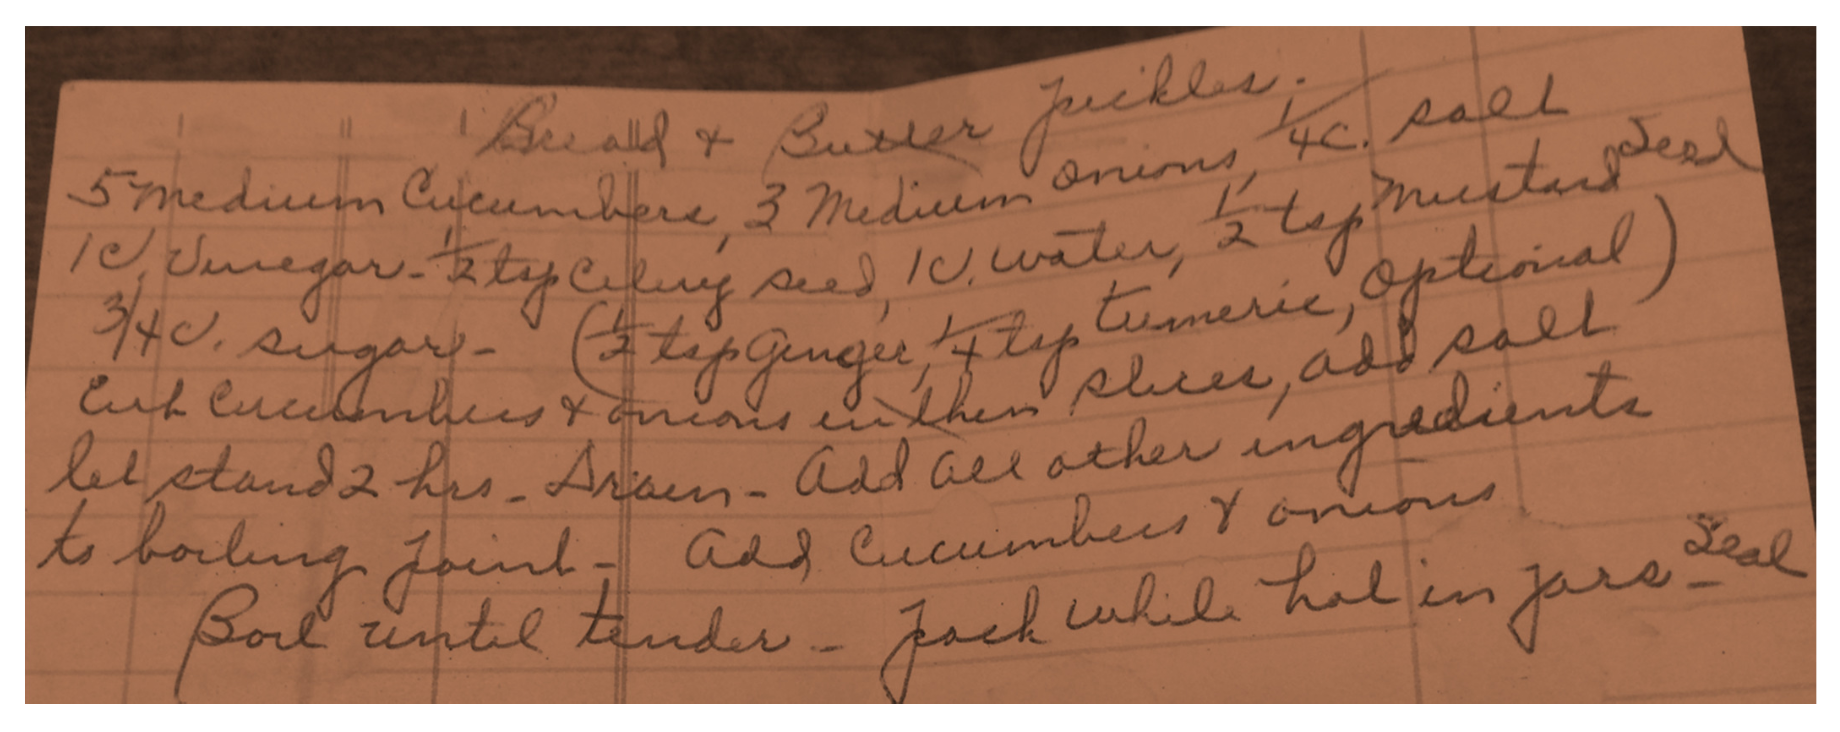 Bread & Butter pickles.
5 medium Cucumbers, 3 Medium onions, 1/4 c. salt
1 c. Vinegar - 1/2 tsp Celery seed, 1 c. water, 1/2 tsp Mustard Seed
3/4 c. sugar - (1/2 tsp Ginger, 1/4 tsp tumeric, optional)
Cut Cucumbers & onions in thin slices, add salt
let stand 2 hrs - Drain - Add all other ingredients
to boiling point - Add Cucumbers & onions
Boil until tender - Pack while hot in jars - Seal